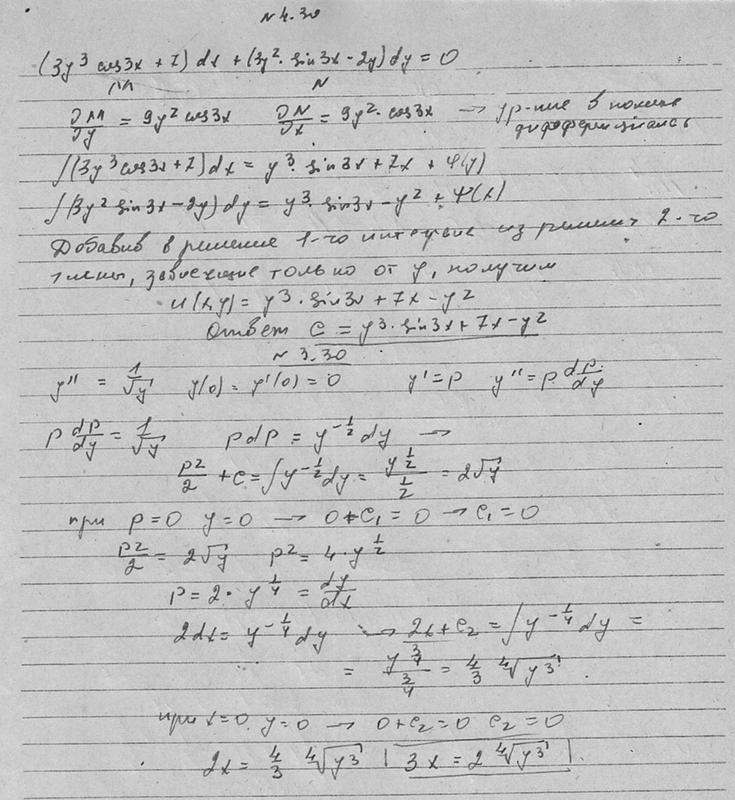 N 4.30
(3y³ cos3x + 7) dx + (3y²· sin3x - 2y) dy = 0
M N
∂M/∂y = 9y² cos3x ∂N/∂x = 9y²· cos3x → ур-ние в полных
дифференциалах
∫(3y³ cos3x + 7) dx = y³· sin3x + 7x + φ(y)
∫(3y² sin3x - 2y) dy = y³· sin3x - y² + Ψ(x)
Добавив в решение 1-го интеграла из решения 2-го
члены, зависящие только от y, получим
u(x,y) = y³· sin3x + 7x - y²
Ответ C = y³· sin3x + 7x - y²
N 3.30
y'' = 1/√y y(0) = y'(0) = 0 y' = p y'' = p dp/dy
p dp/dy = 1/√y p dp = y^(-1/2) dy →
p²/2 + C = ∫ y^(-1/2) dy = y^(1/2) / (1/2) = 2√y
при p = 0 y = 0 → 0 + C₁ = 0 → C₁ = 0
p²/2 = 2√y p² = 4· y^(1/2)
p = 2· y^(1/4) = dy/dx
2dx = y^(-1/4) dy → 2x + C₂ = ∫ y^(-1/4) dy =
= y^(3/4) / (3/4) = 4/3 ⁴√y³
при x = 0 y = 0 → 0 + C₂ = 0 C₂ = 0
2x = 4/3 ⁴√y³ | 3x = 2 ⁴√y³ |